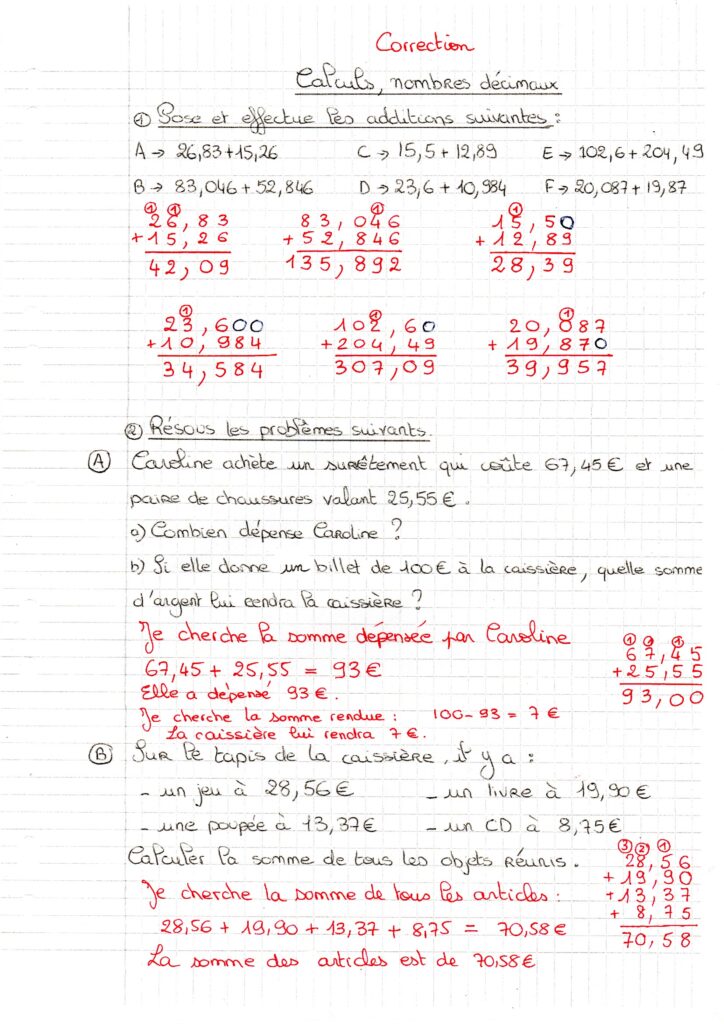 Correction
Calculs, nombres décimaux
① Pose et effectue les additions suivantes :
A → 26,83+15,26 C → 15,5 + 12,89 E → 102,6 + 204,49
B → 83,046 + 52,846 D → 23,6 + 10,984 F → 20,087 + 19,87
① ① ① ①
26,83 83,046 15,50
+15,26 +52,846 +12,89
42,09 135,892 28,39
① ① ①
23,600 102,60 20,087
+10,984 +204,49 +19,870
34,584 307,09 39,957
② Résous les problèmes suivants.
Ⓐ Caroline achète un survêtement qui coûte 67,45€ et une
paire de chaussures valant 25,55€.
a) Combien dépense Caroline ?
b) Si elle donne un billet de 100€ à la caissière, quelle somme
d'argent lui rendra la caissière ?
Je cherche la somme dépensée par Caroline
① ① ①
67,45
67,45 + 25,55 = 93€ +25,55
Elle a dépensé 93€. 93,00
Je cherche la somme rendue : 100-93 = 7€
La caissière lui rendra 7€.
Ⓑ Sur le tapis de la caissière, il y a :
- un jeu à 28,56€ - un livre à 19,90€
- une poupée à 13,37€ - un CD à 8,75€
Calculer la somme de tous les objets réunis.
③ ② ①
28,56
+19,90
Je cherche la somme de tous les articles : +13,37
+8,75
28,56 + 19,90 + 13,37 + 8,75 = 70,58€ 70,58
La somme des articles est de 70,58€